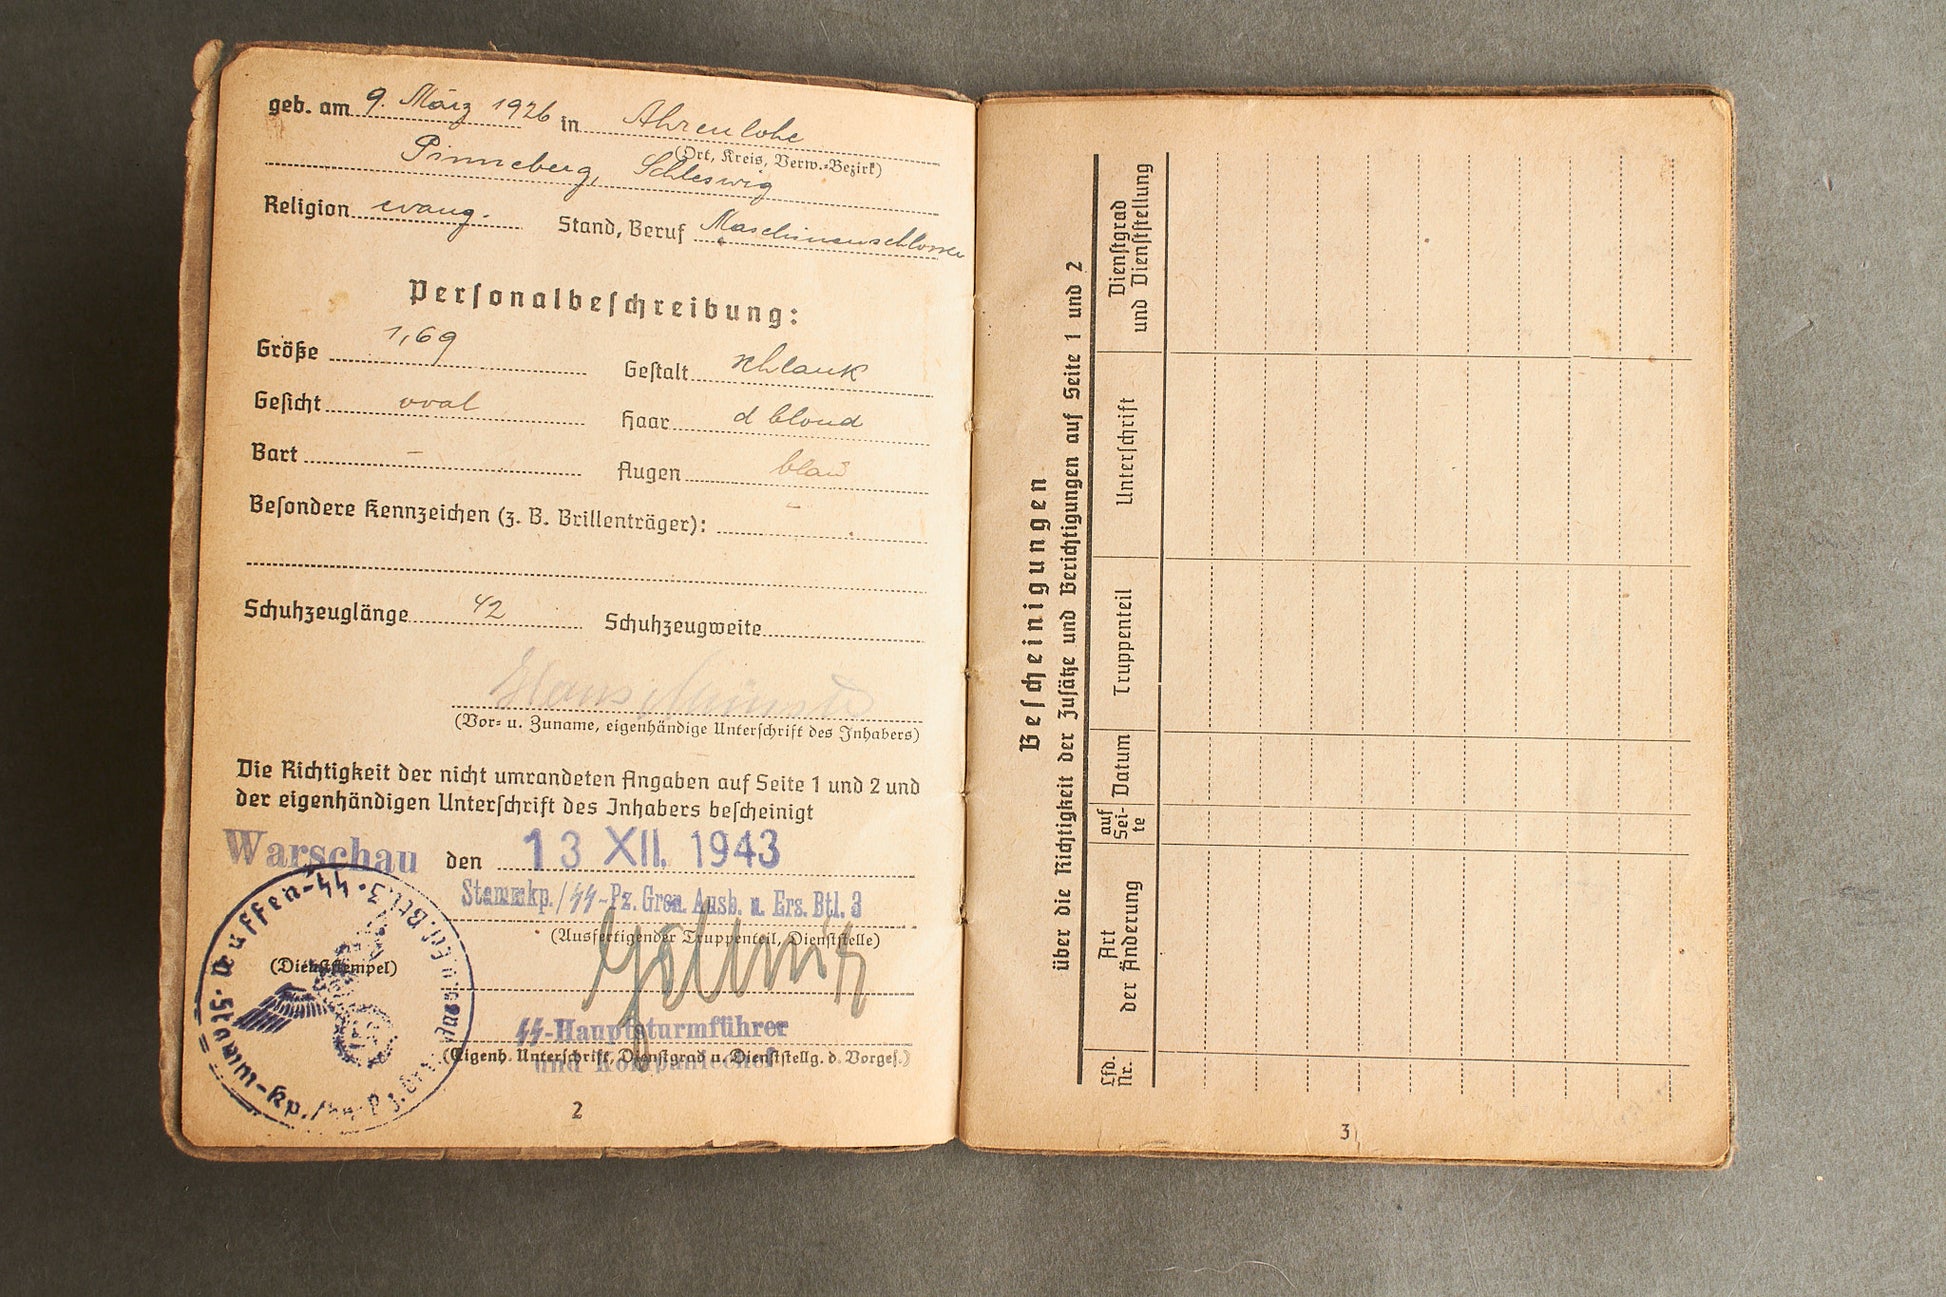 geb. am 9. März 1926 in Ahrenlohe
(Ort, Kreis, Verw.-Bezirk)
Pinneberg, Schleswig
Religion evang. Stand, Beruf Maschinenschlosser
Personalbeschreibung:
Größe 1,69 Gestalt schlank
Gesicht oval Haar d blond
Bart - Augen blau
Besondere Kennzeichen (z. B. Brillenträger): -
Schuhzeuglänge 42 Schuhzeugweite
Hans
(Vor- u. Zuname, eigenhändige Unterschrift des Inhabers)
Die Richtigkeit der nicht umrandeten Angaben auf Seite 1 und 2 und
der eigenhändigen Unterschrift des Inhabers bescheinigt
Warschau den 13 XII. 1943
Stammkp./SS-Pz. Gren. Ausb. u. Ers. Btl. 3
(Ausfertigender Truppenteil, Dienststelle)
(Dienststempel)
SS-Hauptsturmführer
(Eigenh. Unterschrift, Dienstgrad u. Dienststellg. d. Vorges.)
und Kompaniechef
2
Bescheinigungen
über die Richtigkeit der Zusätze und Berichtigungen auf Seite 1 und 2
Lfd. Nr.
Art der Änderung
auf Sei-te
Datum
Truppenteil
Unterschrift
Dienstgrad und Dienststellung
3